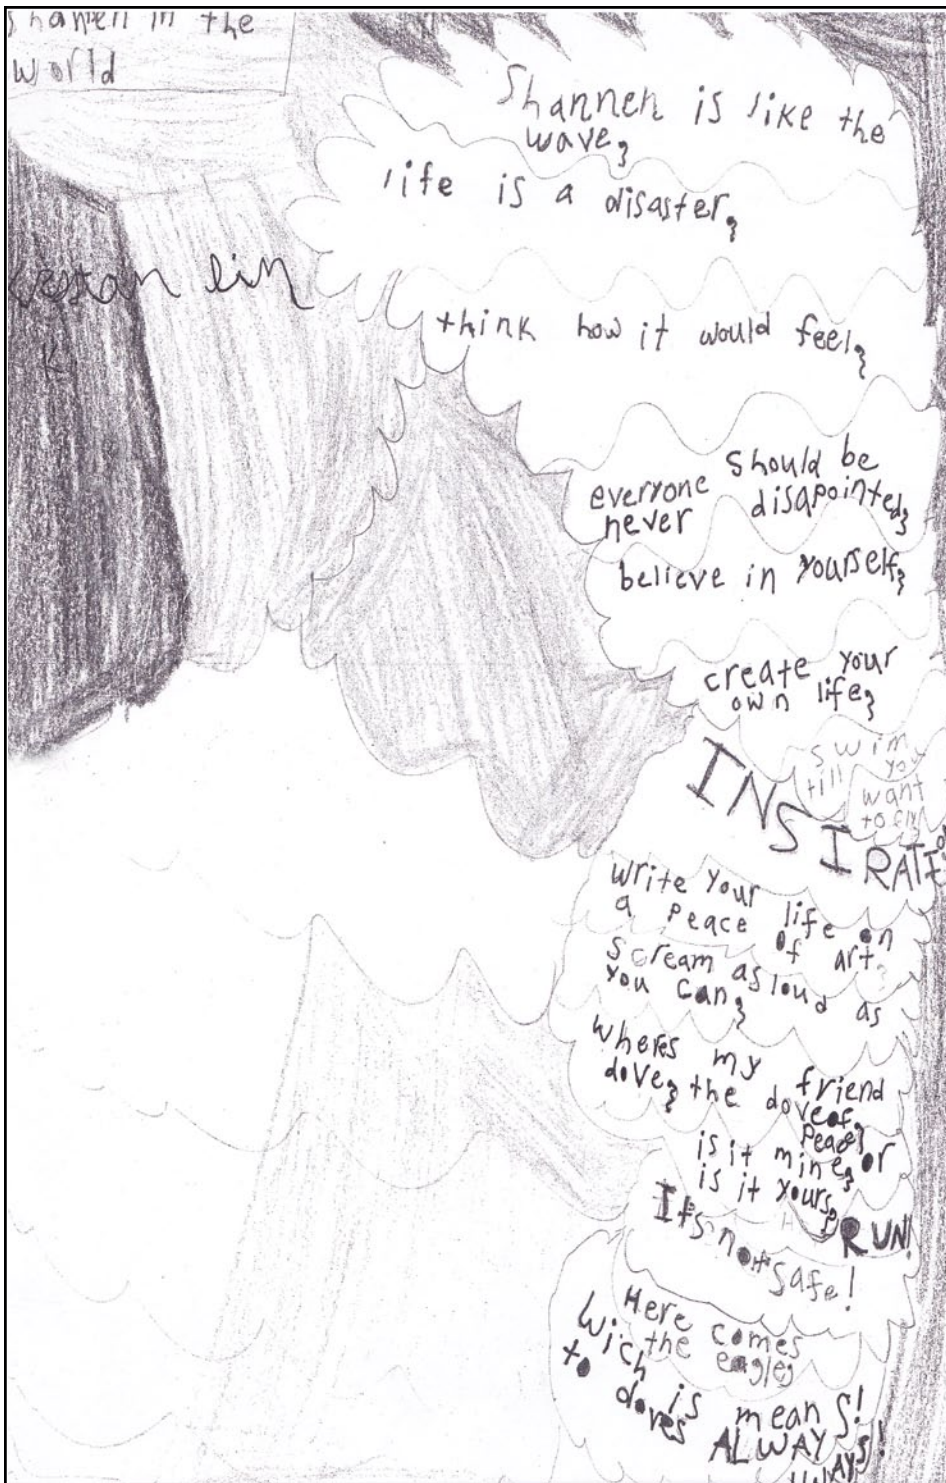 shannen in the
world
Shannen is like the
wave,
life is a disaster,
lin
think how it would feel,
everyone should be
never disapointed,
believe in yourself,
create your
own life,
swim
till you
want
to fly
INSIRATIO
write your life on
a peace of art,
scream as loud as
you can,
wheres my friend
dove, the dove of
peace,
is it mine, or
is it yours,
RUN!
It's not safe!
Here comes
the eagle,
wich is mean!
to doves ALWAYS!